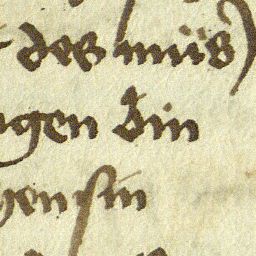 des müs
ngen bin
hen sin